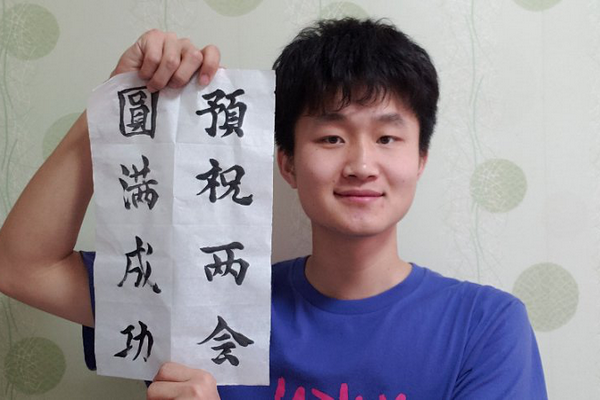 預祝两会
圓满成功